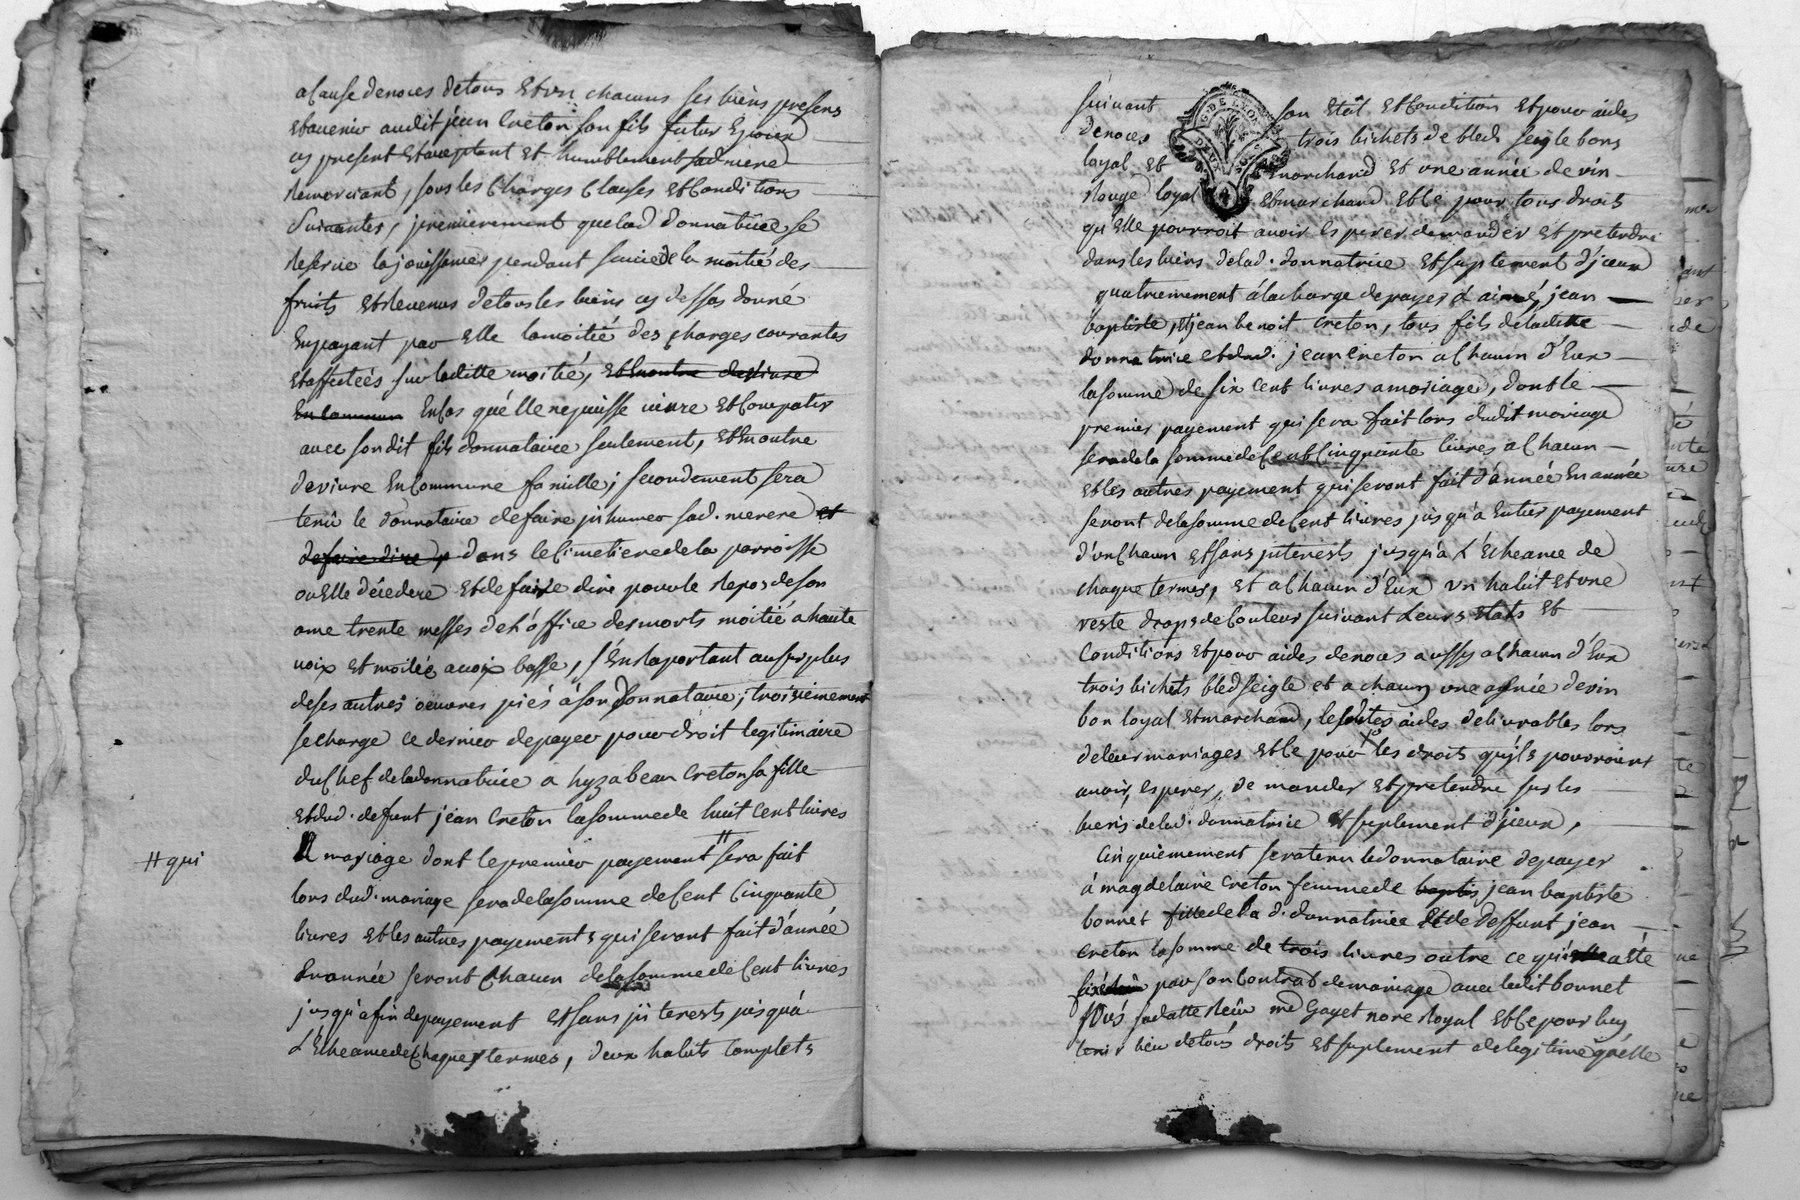 a Cause denoces detous Et un chacuns ses biens presens
Et avenir audit jean Creton son fils futur Epoux
cy present Et aceptant Et humblement sad mere
Remerciant, sous les Charges Clauses Et Conditions
Suivantes, premierement que lad donnatrice se
Reserve la jouissance pendant sa vie de la moitié des
fruits Et Revenus de tous les biens cy dessus donné
En payant par Elle la moitié des charges courantes
Et affectées sur laditte moitié, Et En outre de vivre
En Commun En Cas qu'elle ne puisse vivre Et Compatir
avec son dit fils donnataire seulement, Et En outre
de vivre En Commune famille; secondement sera
tenû le donnataire de faire jnhumer sad. mere et
de faire dire dans le Cimetiere de la parroisse
ou Elle décedera Et de faire dire pour le Repos de son
ame trente messes de l'office des morts moitié a haute
voix Et moitié a voix basse, s'En Raportant au surplus
de ses autres oeuvres piés à son Donnataire; troisiemement
se charge ce dernier de payer pour droit legitimaire
du Chef de la donnatrice a Hyzabeau Creton sa fille
Et dud. defunt jean Creton la somme de huit Cent livres
# qui
A mariage dont le premier payement # sera fait
lors dud. mariage sera de la somme de Cent Cinquante
livres Et les autres payements qui seront fait d'année
En année seront Chacun de la somme de Cent livres
jusqu'a fin de payement Et sans jnterests jusqu'a
L'Echeance de Chaques termes, deux habits Complets
G. DE LYON
DEUX
suivant son Etat Et Condition Et pour aides
denoces trois bichets de bled seigle bons
loyal Et marchand Et une année de vin
Rouge loyal Et marchand Et Ce pour tous droits
qu'Elle pourroit avoir Esperer demander Et pretendre
dans les biens de lad. donnatrice Et suplement d'jceux
quatriemement à la charge de payer à aimé, jean
baptiste, Et jean benoit Creton, tous fils de laditte
donnatrice et dud. jean Creton a Chacun d'Eux
la somme de six Cent livres a mariage, dont le
premier payement qui sera fait lors dudit mariage
sera de la somme de Cent Cinquante livres a Chacun
Et les autres payement qui seront fait d'année En année
seront de la somme de Cent livres jusqu'a Entier payement
d'un Chacun Et sans jnterests jusqu'à L'Echeance de
chaque termes, Et a Chacun d'Eux un habit Et une
veste draps de Couleur suivant Leurs Etats Et
Conditions Et pour aides denoces aussy a Chacun d'Eux
trois bichets bled seigle et a chacun une année de vin
bon loyal Et marchand, lesdites aides delivrables lors
de leur mariages Et Ce pour les droits qu'jls pourroient
avoir, Esperer, demander Et pretendre sur les
biens de lad. donnatrice Et suplement d'jceux,
Cinquiemement sera tenu le donnataire de payer
à magdelaine Creton femme de baptis jean baptiste
bonnet fille de la d. donnatrice Et de deffunt jean
Creton la somme de trois livres outre ce qui a Eté
par son Contrat de mariage avec ledit bonnet
sous sa datte Reçû me Gayet nore Royal Et Ce pour luy
tenir lieu de tous droits Et suplement de legitime qu'elle